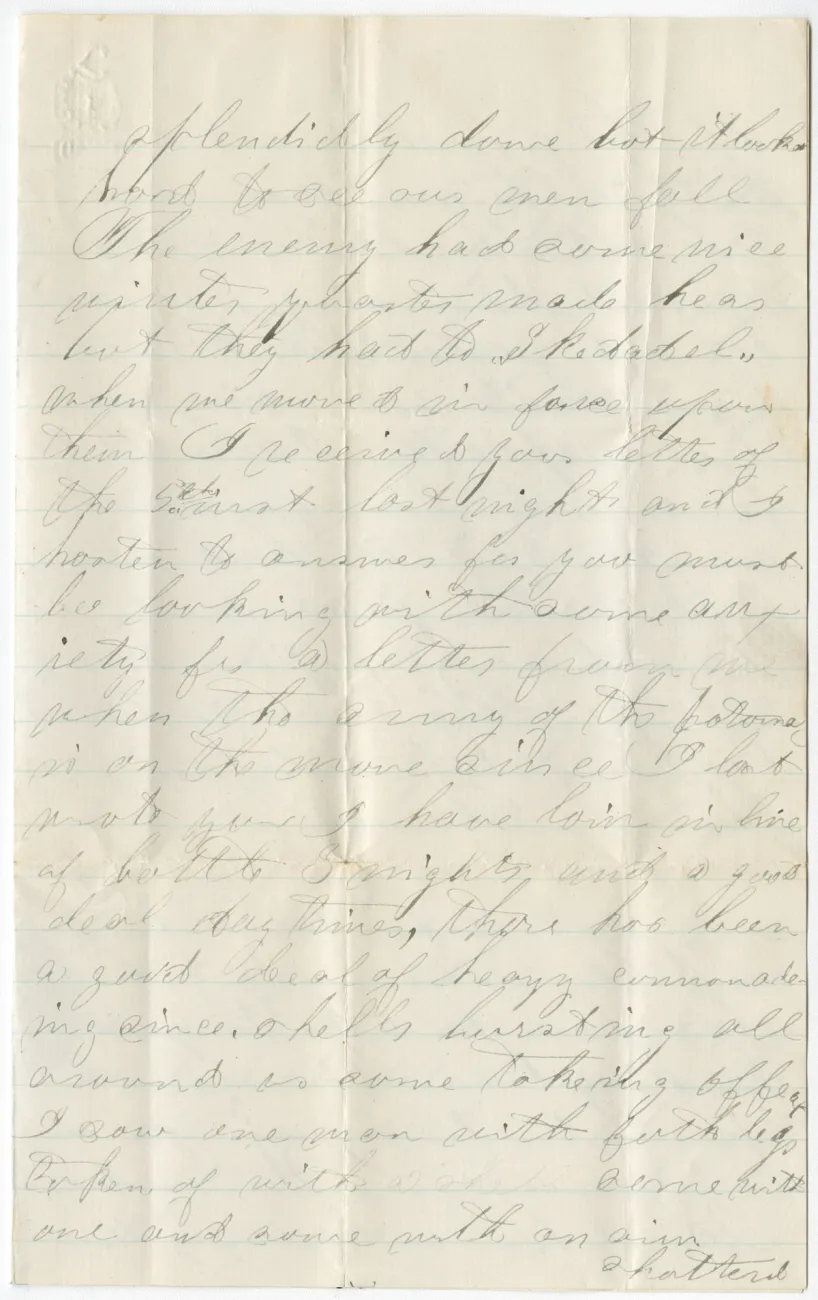 splendidly done but it looks
hard to see our men fall
The enemy had some nice
winter quarters made hear
but they had to „Skedadel„
when we moved in force upon
them I received your letter of
the 5th inst last night and I
hasten to answer for you must
be looking with some anx
iety for a letter from me
when the army of the potomac
is on the move since I last
wrote you I have lain in line
of battle 5 nights and a good
deal day times, there has been
a good deal of heavy cannonade-
ing since. shells bursting all
around us some takeing effect
I saw one man with both legs
taken of with a shell some with
one and some with an arm
shatterd